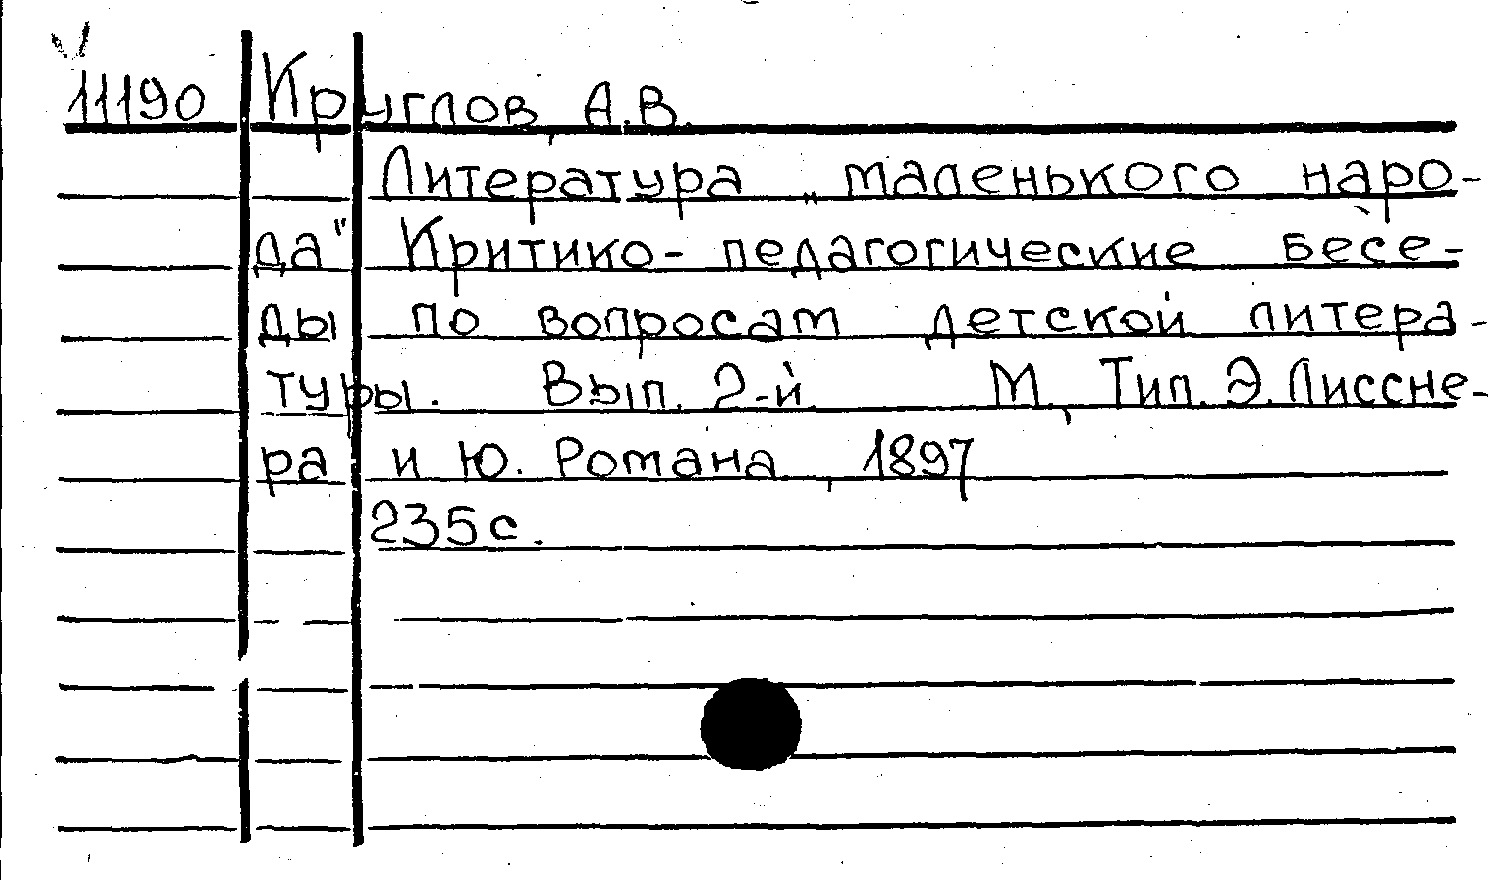 11190 Круглов, А.В.
Литература „маленького наро-
да" Критико-педагогические бесе-
ды по вопросам детской литера-
туры. Вып. 2-й М., Тип. Э. Лиссне-
ра и Ю. Романа, 1897
235с.